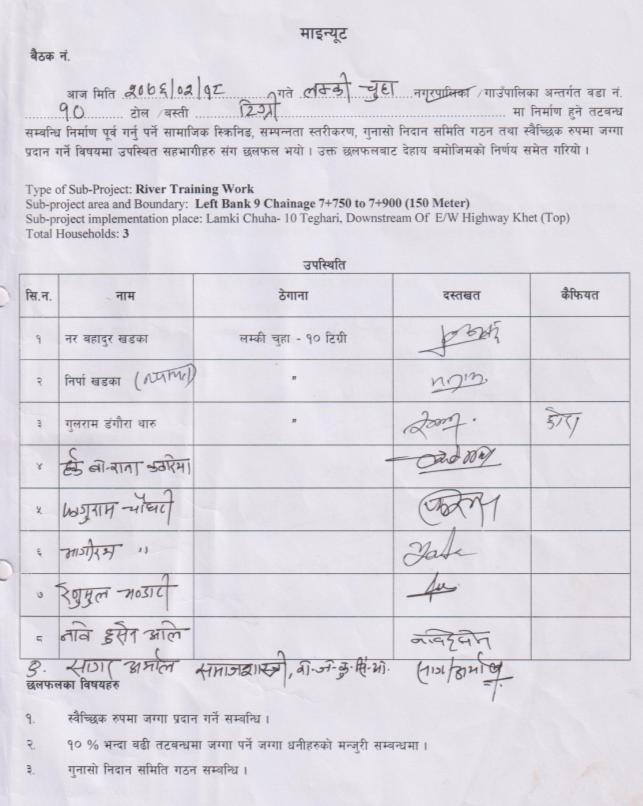 माइन्यूट
बैठक नं.
आज मिति २०७६/०२/१८ गते लम्की चुहा नगरपालिका /गाउँपालिका अन्तर्गत वडा नं.
१० टोल /बस्ती टिग्री मा निर्माण हुने तटबन्ध
सम्बन्धि निर्माण पूर्व गर्नु पर्ने सामाजिक स्क्रिनिङ, सम्पन्नता स्तरीकरण, गुनासो निदान समिति गठन तथा स्वैच्छिक रुपमा जग्गा
प्रदान गर्ने विषयमा उपस्थित सहभागीहरु संग छलफल भयो । उक्त छलफलबाट देहाय बमोजिमको निर्णय समेत गरियो ।
Type of Sub-Project: River Training Work
Sub-project area and Boundary: Left Bank 9 Chainage 7+750 to 7+900 (150 Meter)
Sub-project implementation place: Lamki Chuha- 10 Teghari, Downstream Of E/W Highway Khet (Top)
Total Households: 3
उपस्थिति
सि.न. नाम ठेगाना दस्तखत कैफियत
१ नर बहादुर खडका लम्की चुहा - १० टिग्री
२ निर्पा खडका "
३ गुलराम डंगौरा थारु "
४
५ फगुराम चौधरी
६ "
७
८ हुसेन
९. सागर अर्माल समाजशास्त्री, सागर अर्माल
छलफलका विषयहरु
१. स्वैच्छिक रुपमा जग्गा प्रदान गर्ने सम्बन्धि ।
२. १० % भन्दा बढी तटबन्धमा जग्गा पर्ने जग्गा धनीहरुको मन्जुरी सम्बन्धमा ।
३. गुनासो निदान समिति गठन सम्बन्धि ।